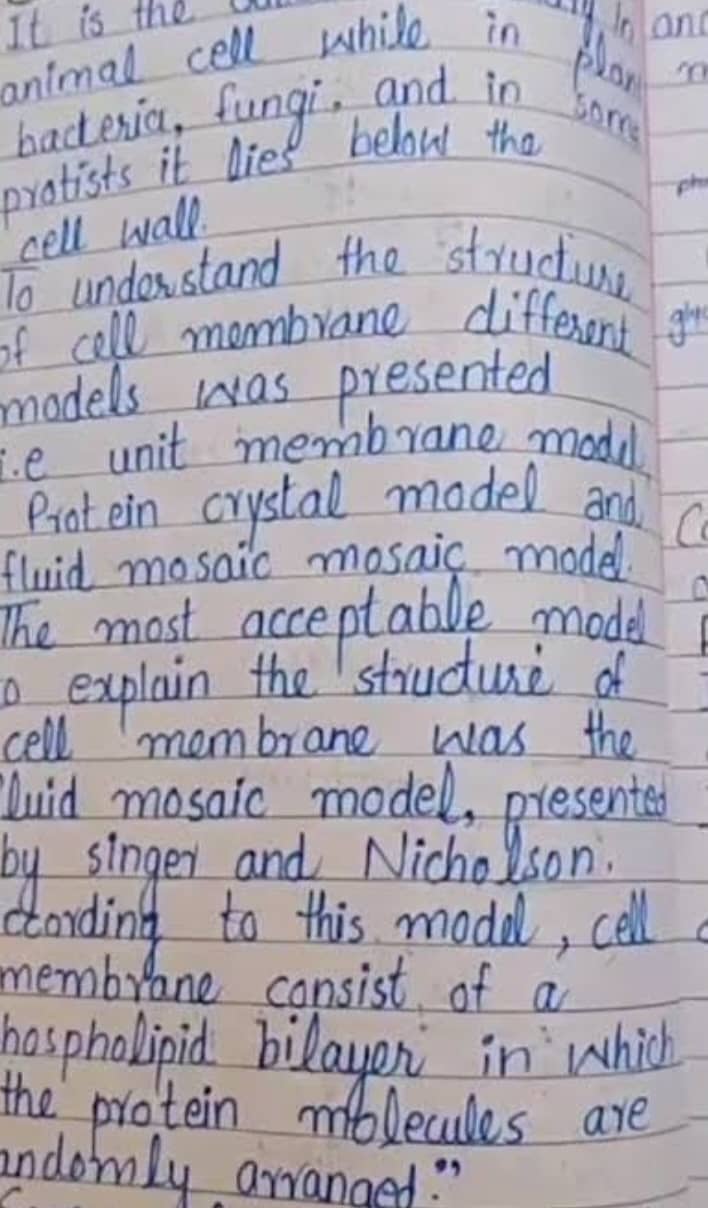 It is the
animal cell while in plan
bacteria, fungi, and in some
protists it lies below the
cell wall.
To understand the structure
of cell membrane different
models was presented
i.e unit membrane model,
Protein crystal model and
fluid mosaic mosaic model.
The most acceptable model
o explain the structure of
cell membrane was the
fluid mosaic model, presented
by singer and Nicholson.
ccording to this model, cell
membrane consist of a
hospholipid bilayer in which
the protein molecules are
andomly arranged."